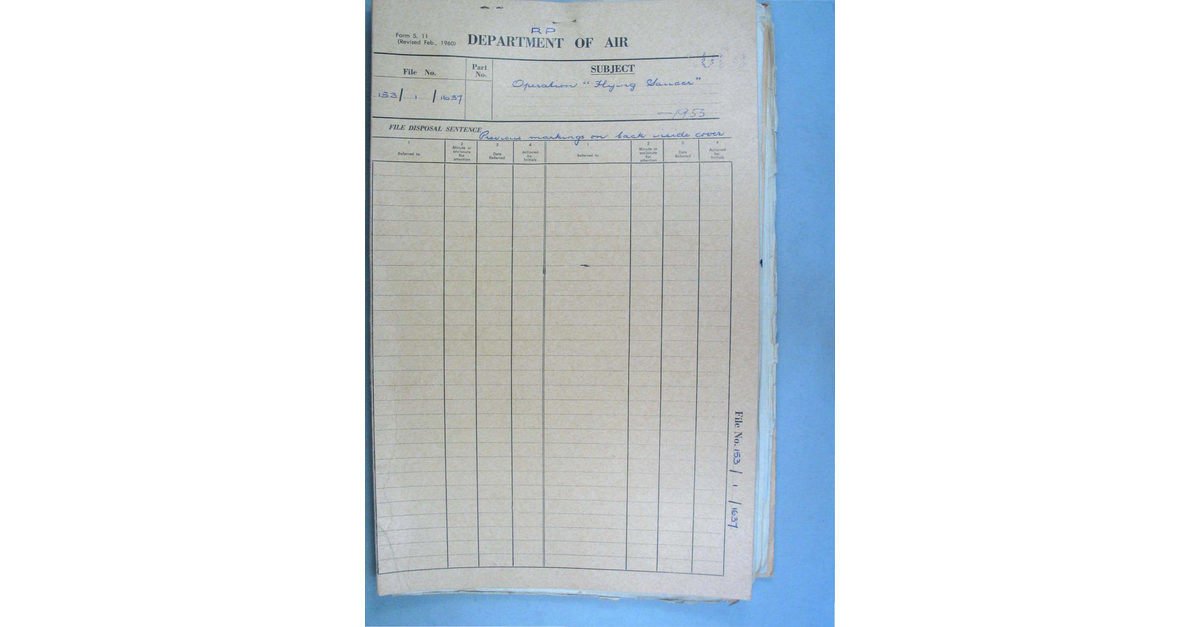 RP
Form S. 11
(Revised Feb., 1960)
DEPARTMENT OF AIR
File No.
Part No.
SUBJECT
153/1/1637
Operation "Flying Saucer"
—1953
FILE DISPOSAL SENTENCE
Previous markings on back inside cover
1 2 3 4 1 2 3 4
Referred to
Minute or enclosure for attention
Date Referred
Actioned by Initials
Referred to
Minute or enclosure for attention
Date Referred
Actioned by Initials
File No. 153/1/1637